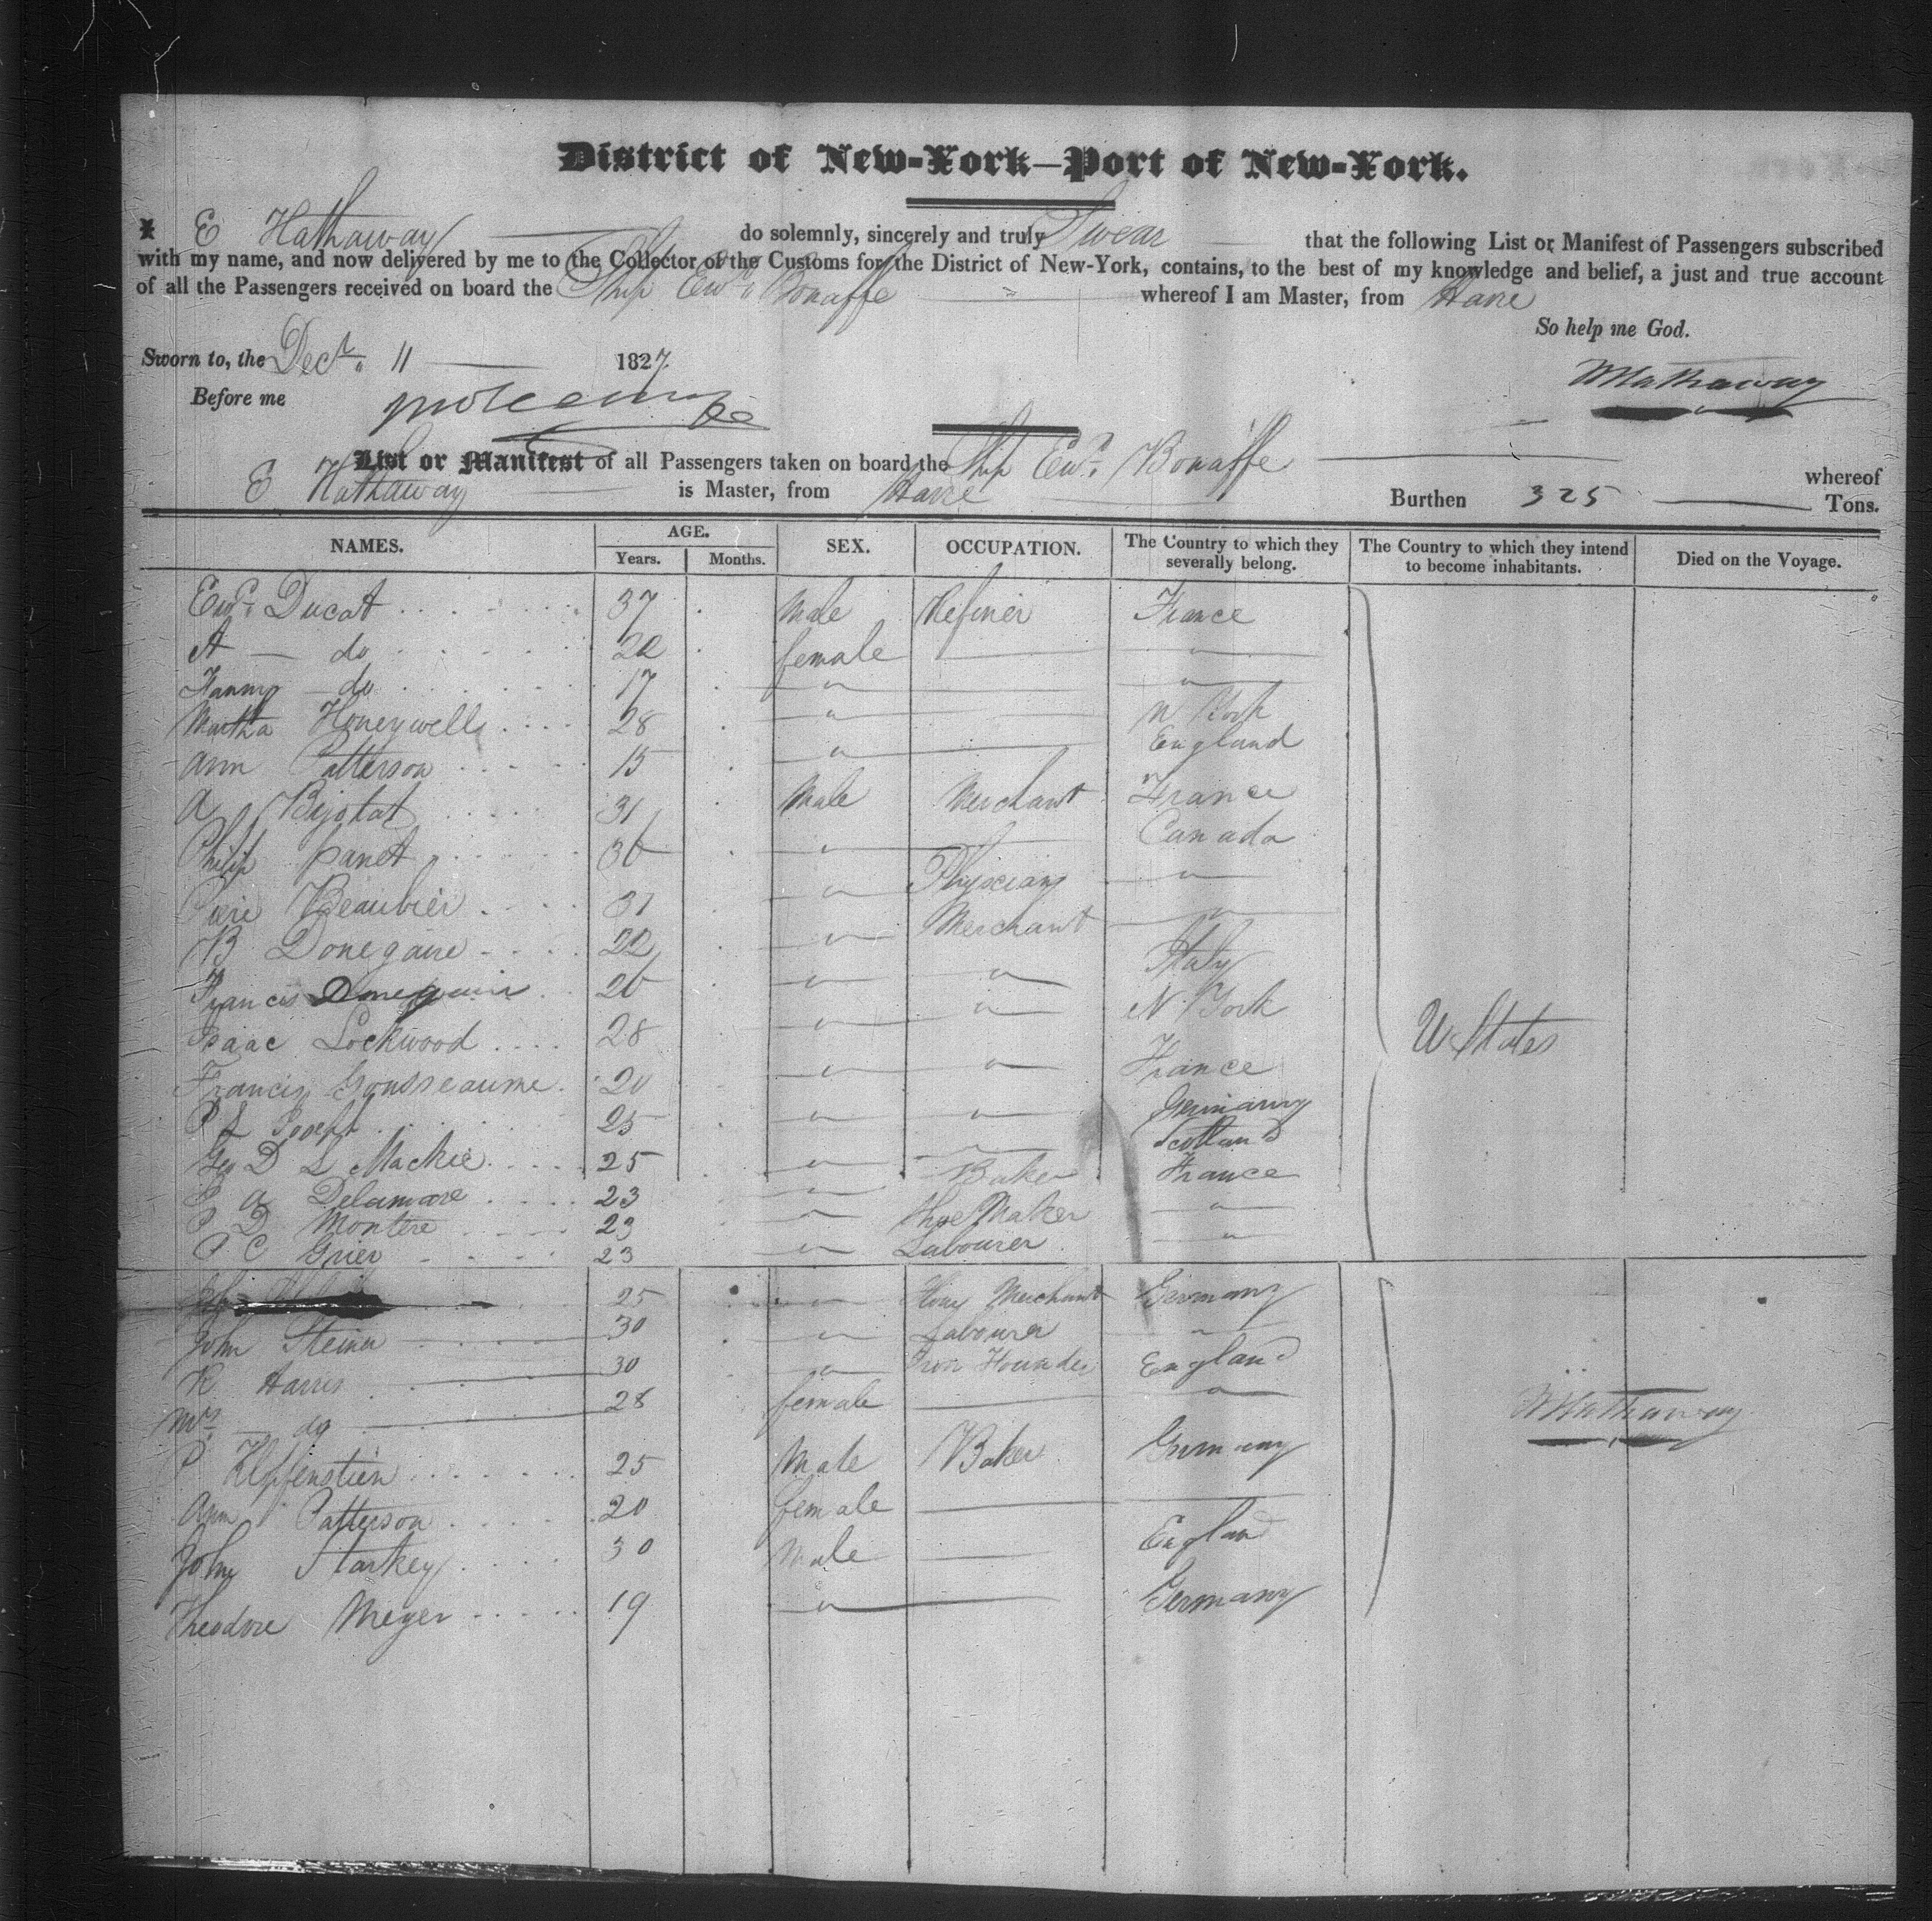 District of New-York—Port of New-York.
I E Hathaway do solemnly, sincerely and truly Swear that the following List or Manifest of Passengers subscribed
with my name, and now delivered by me to the Collector of the Customs for the District of New-York, contains, to the best of my knowledge and belief, a just and true account
of all the Passengers received on board the Ship Edwd. Bonaffe whereof I am Master, from Havre
So help me God.
Sworn to, the Decr. 11 1827.
Before me
Hathaway
List or Manifest of all Passengers taken on board the Ship Edwd. Bonaffe whereof
E Hathaway is Master, from Havre Burthen 325 Tons.
NAMES. AGE. SEX. OCCUPATION. The Country to which they severally belong. The Country to which they intend to become inhabitants. Died on the Voyage.
Years. Months.
Edwd. Ducat 37 Male Refiner France
A — do 22 female — "
Fanny — do 17 " — "
Martha Honeywell 28 " — N York
Ann Patterson 15 " — England
A Bijotat 31 Male Merchant France
Philip Panet 36 " — Canada
Beaubier 31 " Physician "
B Donegane 22 " Merchant "
Francis Donegani 26 " " Italy
Isaac Lockwood 28 " " N. York
U States
Francis Gousseaume 20 " " France
P L Joseph 25 " " Germany
Geo D L Mackie 25 " " Scotland
A Delamare 23 " Baker France
P D Montere 23 " Shoe Maker "
P C Grier 23 " Labourer "
25 " Merchant Germany
John Steiner 30 " Labourer "
R Harris 30 " Iron Founder England
Mrs. — do 28 female — "
P Klopfenstien 25 Male Baker Germany
Hathaway
Ann Patterson 20 female —
John Starkey 30 Male — England
Theodore Meyer 19 " — Germany